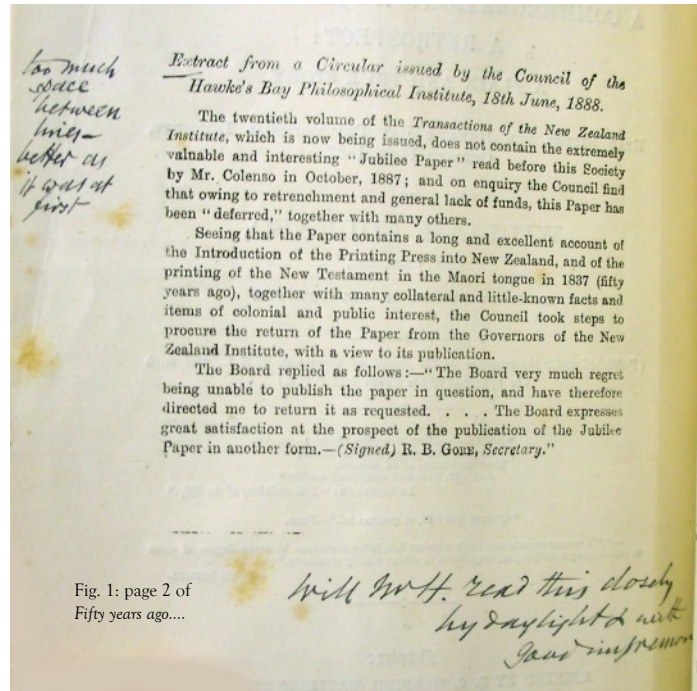 too much
space
between
lines—
better as
it was at
first
Extract from a Circular issued by the Council of the
Hawke's Bay Philosophical Institute, 18th June, 1888.
The twentieth volume of the Transactions of the New Zealand
Institute, which is now being issued, does not contain the extremely
valuable and interesting "Jubilee Paper" read before this Society
by Mr. Colenso in October, 1887; and on enquiry the Council find
that owing to retrenchment and general lack of funds, this Paper has
been "deferred," together with many others.
Seeing that the Paper contains a long and excellent account of
the Introduction of the Printing Press into New Zealand, and of the
printing of the New Testament in the Maori tongue in 1837 (fifty
years ago), together with many collateral and little-known facts and
items of colonial and public interest, the Council took steps to
procure the return of the Paper from the Governors of the New
Zealand Institute, with a view to its publication.
The Board replied as follows:—"The Board very much regret
being unable to publish the paper in question, and have therefore
directed me to return it as requested. . . . The Board expresses
great satisfaction at the prospect of the publication of the Jubilee
Paper in another form.—(Signed) R. B. GORE, Secretary."
Fig. 1: page 2 of
Fifty years ago....
Will Mr H. read this closely
by daylight & with
good